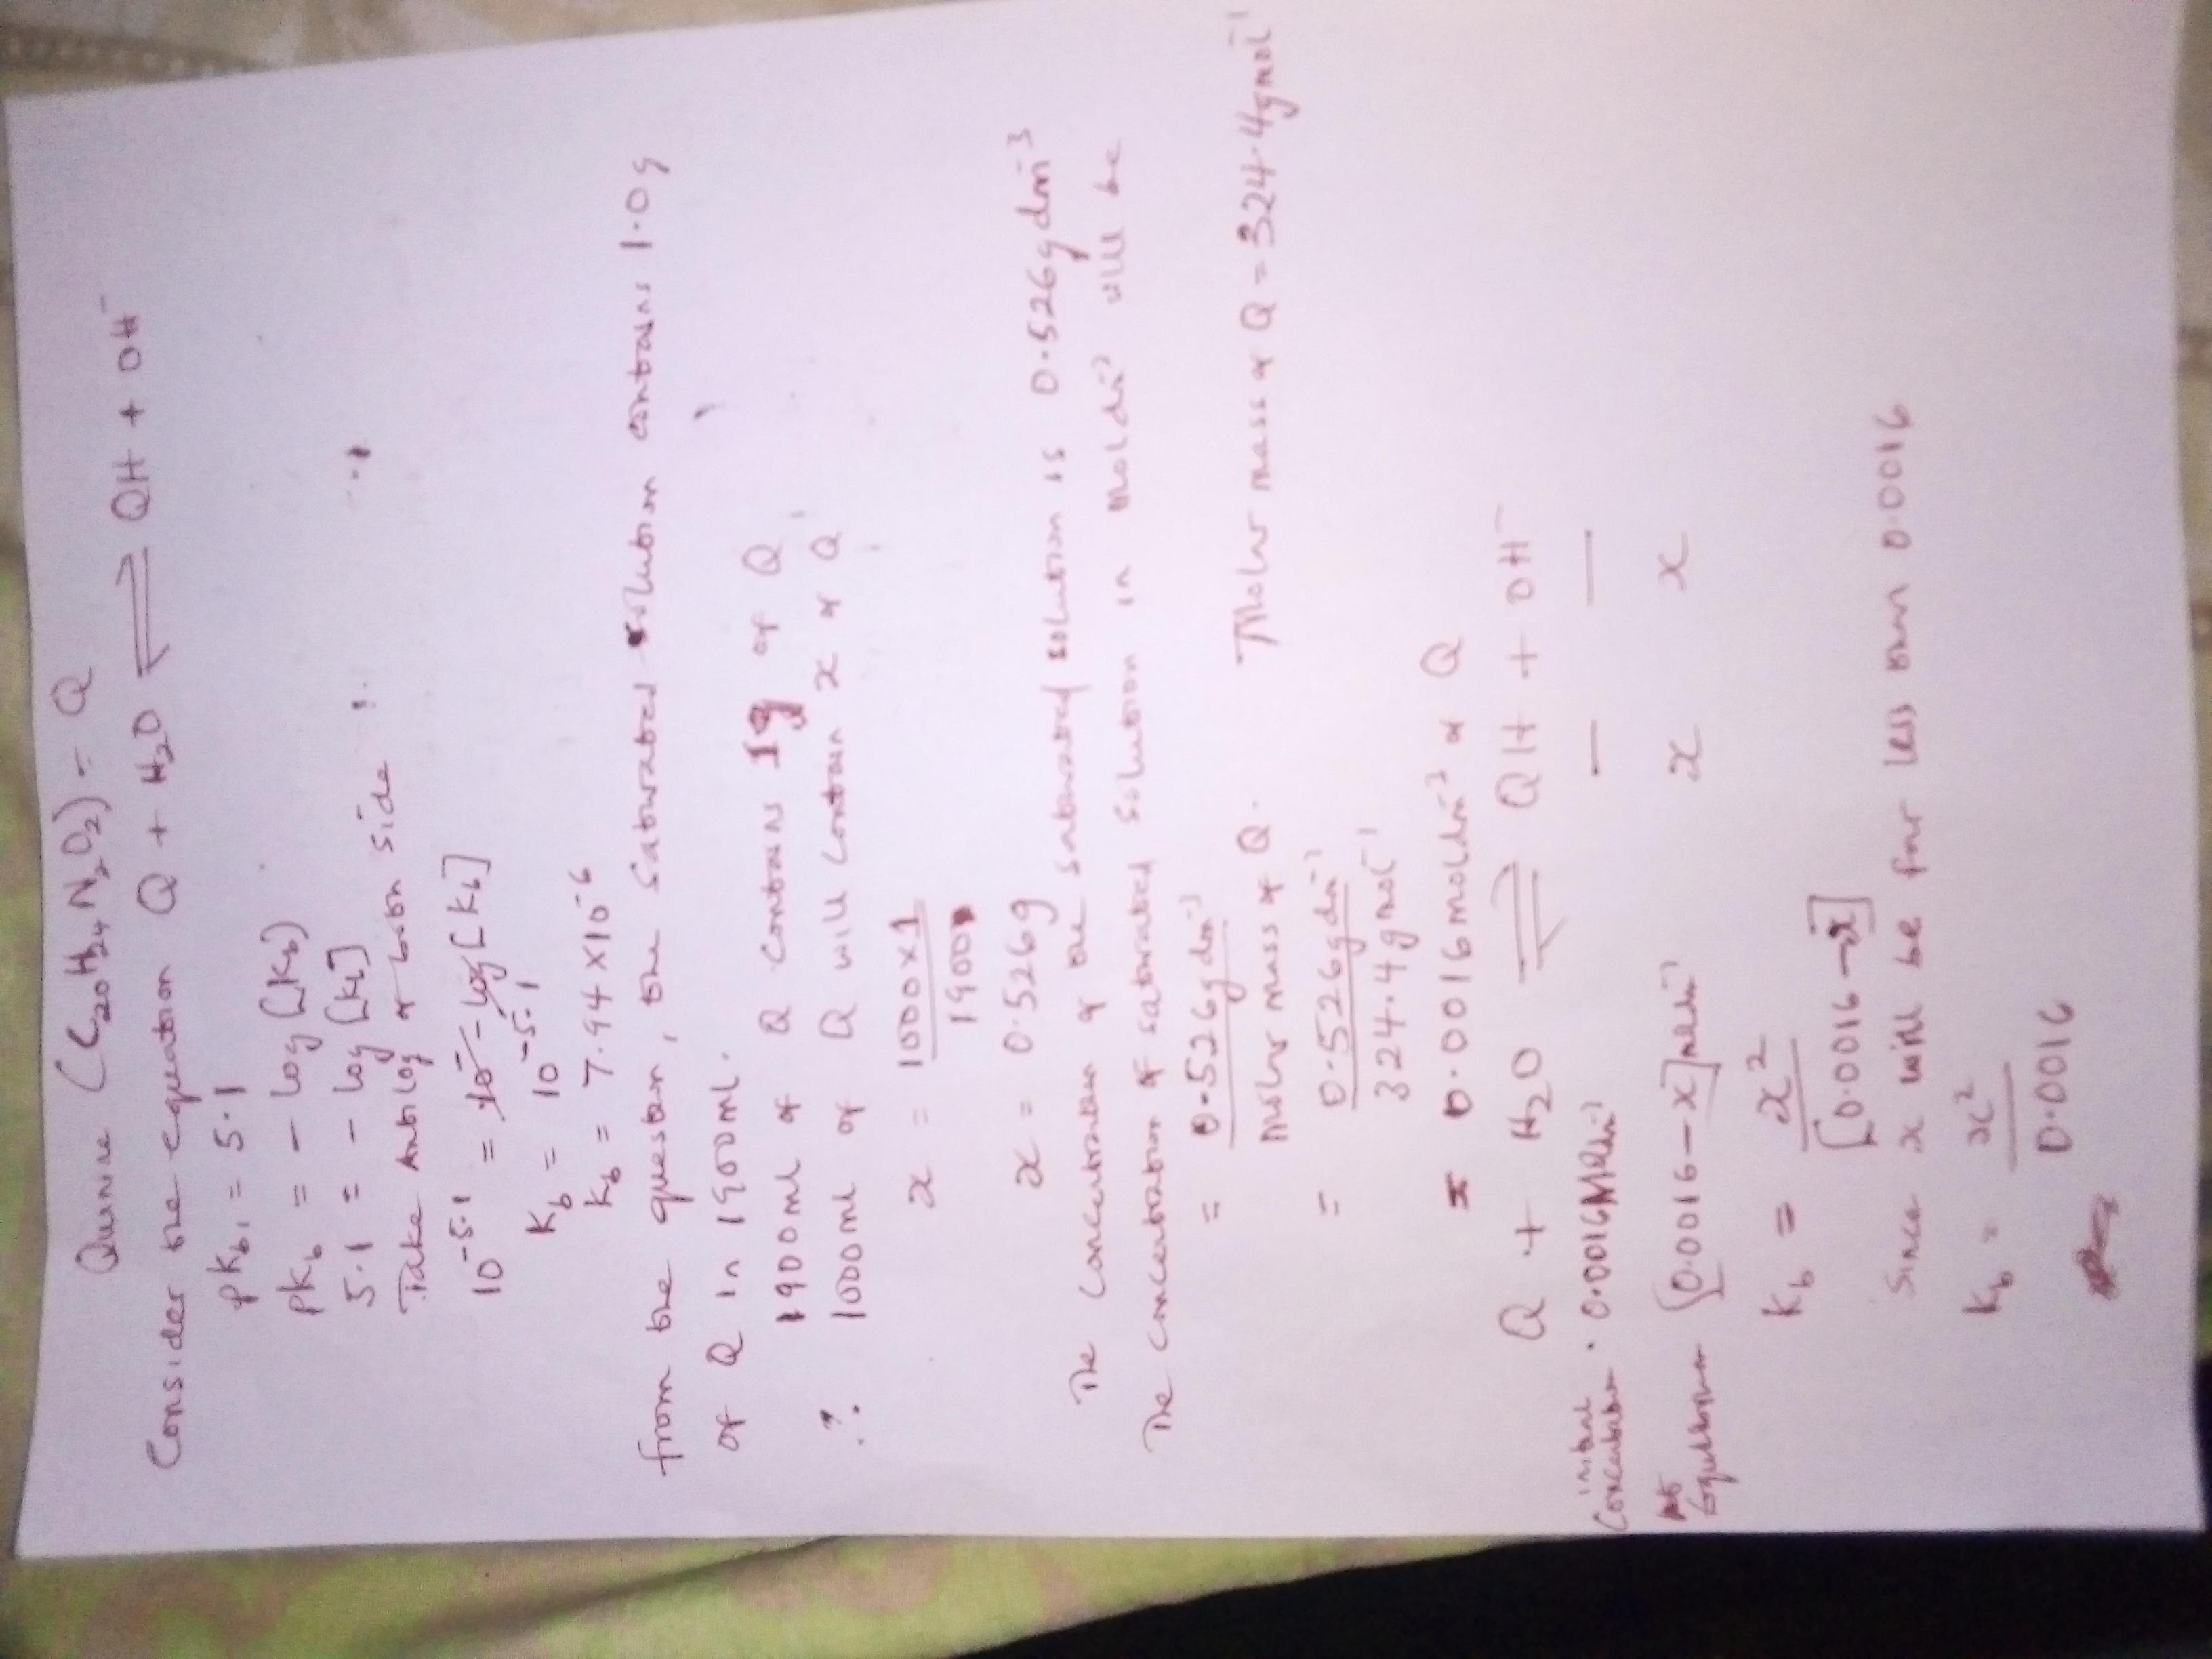 Quinine (C₂₀H₂₄N₂O₂) = Q
Consider the equation Q + H₂O ⇌ QH + OH⁻
pKb₁ = 5.1
pKb = - log [Kb)
5.1 = - log [Kb]
Take Antilog of both side
10⁻⁵·¹ = 10⁻ - log [Kb]
Kb = 10⁻⁵·¹
Kb = 7.94 x 10⁻⁶
from the question, the saturated solution contains 1.0g
of Q in 1900ml.
1900ml of Q contains 1g of Q
∴ 1000ml of Q will contain x of Q
x = 1000 x 1
1900
x = 0.526g
The concentration of the saturated solution is 0.526g dm⁻³
The concentration of saturated solution in moldm⁻³ will be
= 0.526g dm⁻³
molar mass of Q. Molar mass of Q = 324.4gmol⁻¹
= 0.526g dm⁻³
324.4gmol⁻¹
= 0.0016 moldm⁻³ of Q
Q + H₂O ⇌ QH + OH⁻
initial concentration 0.0016Mldm⁻³ — —
At Equilibrium [0.0016 - x] mldm⁻³ x x
Kb = x²
[0.0016 - x]
Since x will be far less than 0.0016
Kb = x²
0.0016